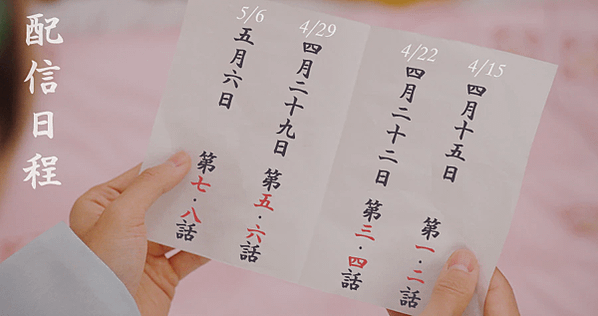 配信日程
4/15
四月十五日
第一・二話
4/22
四月二十二日
第三・四話
4/29
四月二十九日
第五・六話
5/6
五月六日
第七・八話